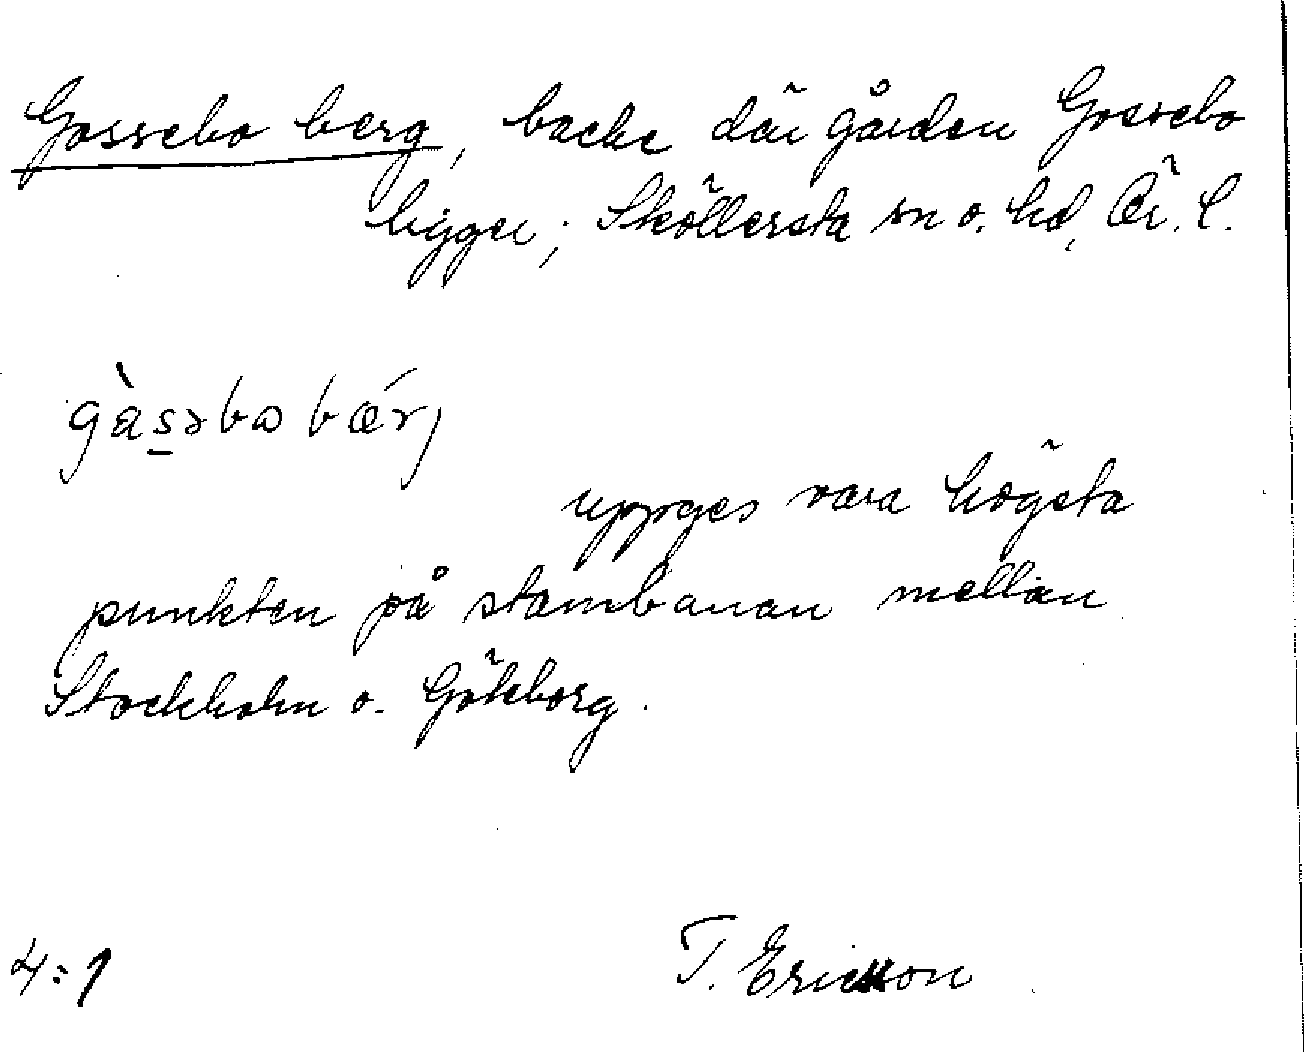 Gossebo berg, backe där gården Gossebo
ligger; Sköllersta sn o. hd, Ör. l.
gàsəbo bǽrj
uppges vara högsta
punkten på stambanan mellan
Stockholm o. Göteborg.
4:1 T. Ericsson